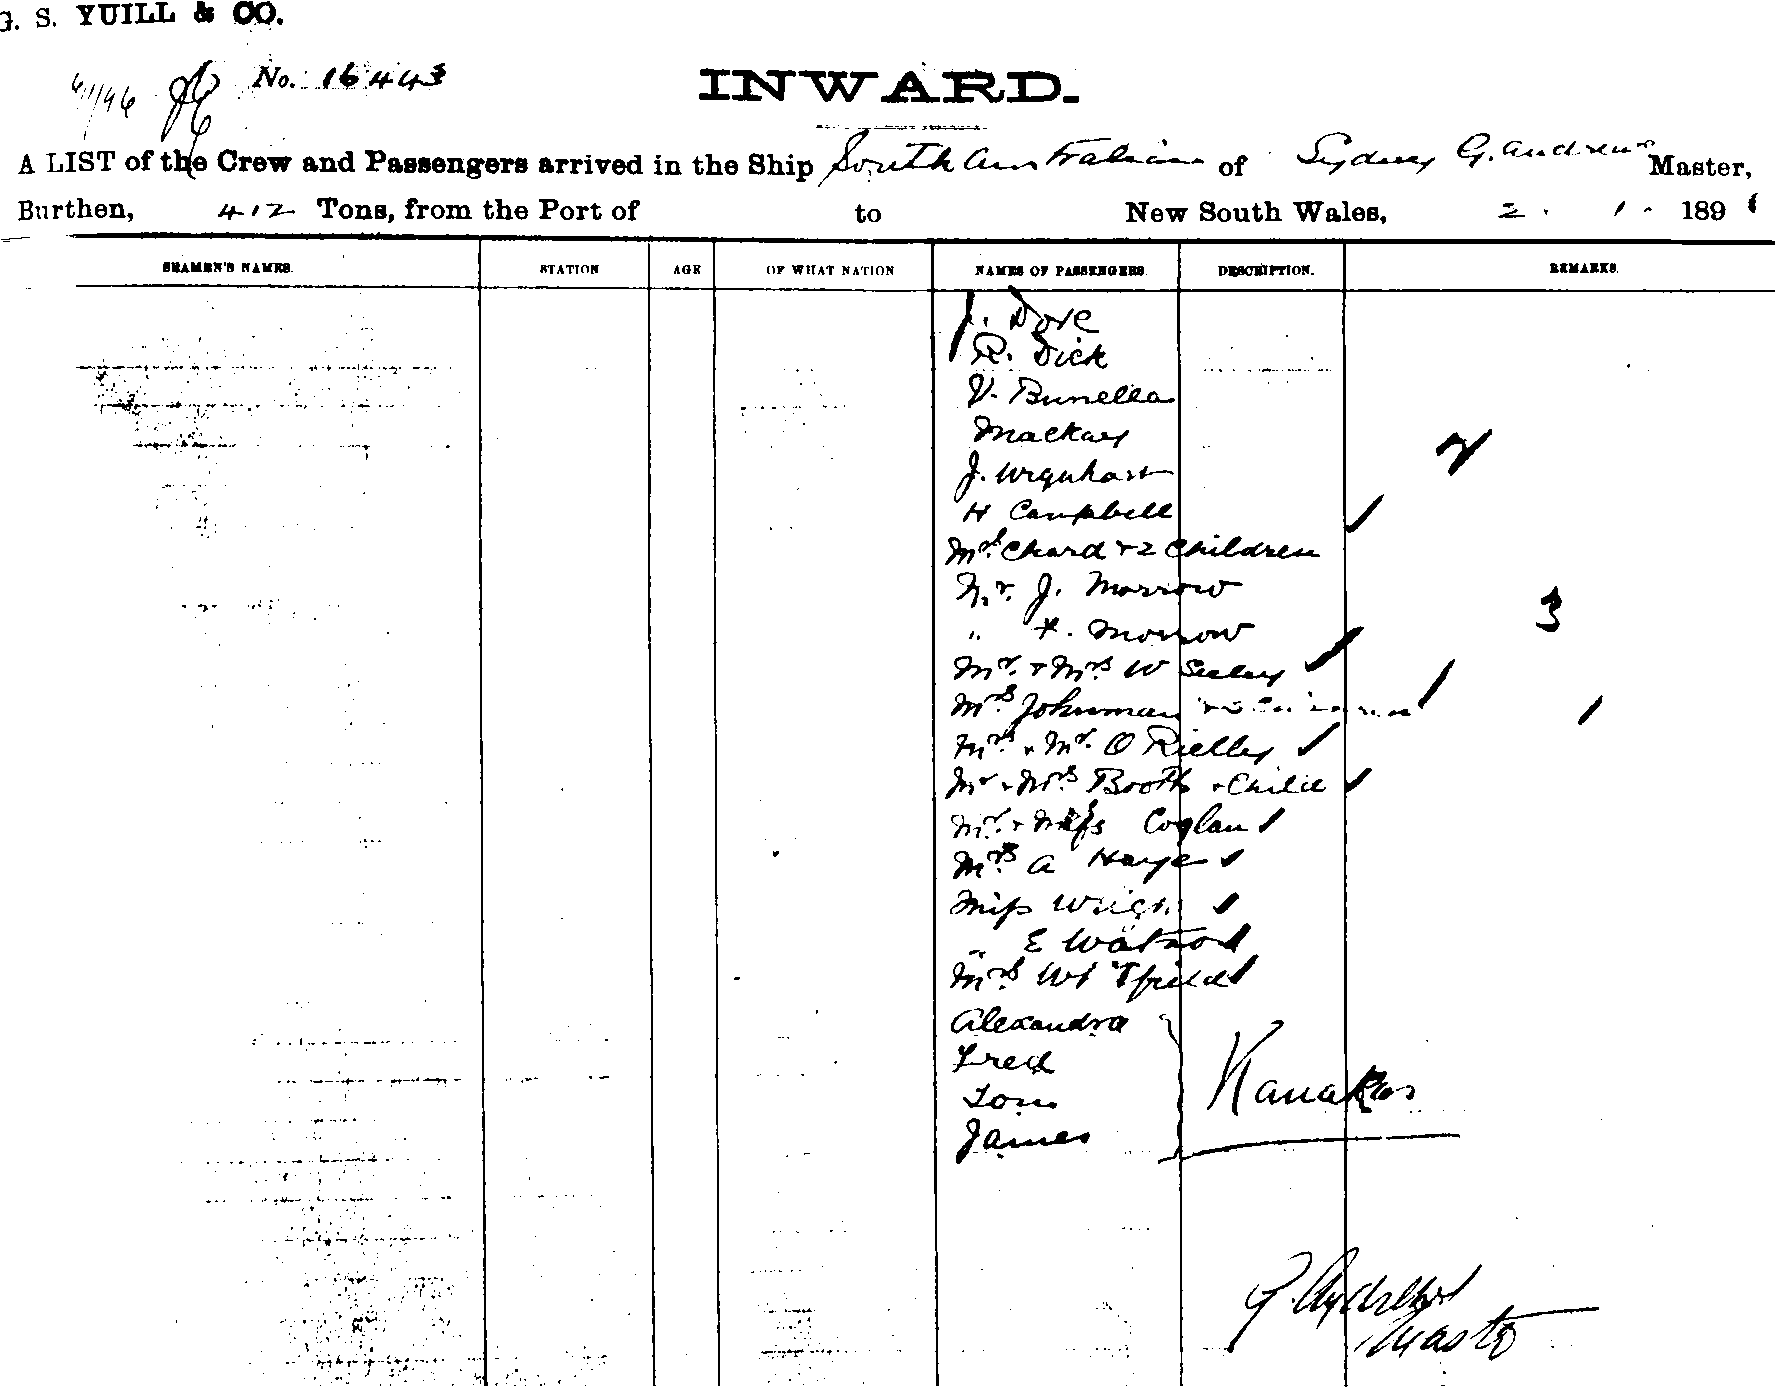 G. S. YUILL & CO.
No. 16443
INWARD.
A LIST of the Crew and Passengers arrived in the Ship South Australian of Sydney G. Andrews Master,
Burthen, 412 Tons, from the Port of to New South Wales, 2. 1. 189
SEAMEN'S NAMES. STATION AGE OF WHAT NATION NAMES OF PASSENGERS. DESCRIPTION. REMARKS.
J. Dore
R. Dick
V. Bunella
Mackay
2
J. Urquhart
H Campbell
Mrs. Chard + 2 Children
Mr. J. Morrow
3
" Morrow
Mr. + Mrs W Seeley
Mrs Johnman + 2
Mrs + Mr. O Rielly
Mr + Mrs. Booth + Child
Mr. + Miss Coglan
Mrs A Haye
Miss Wright
" E Watson
Mrs Whitfield
Alexandra
Fred
Kanakas
Tom
James
G. Andrews
Master